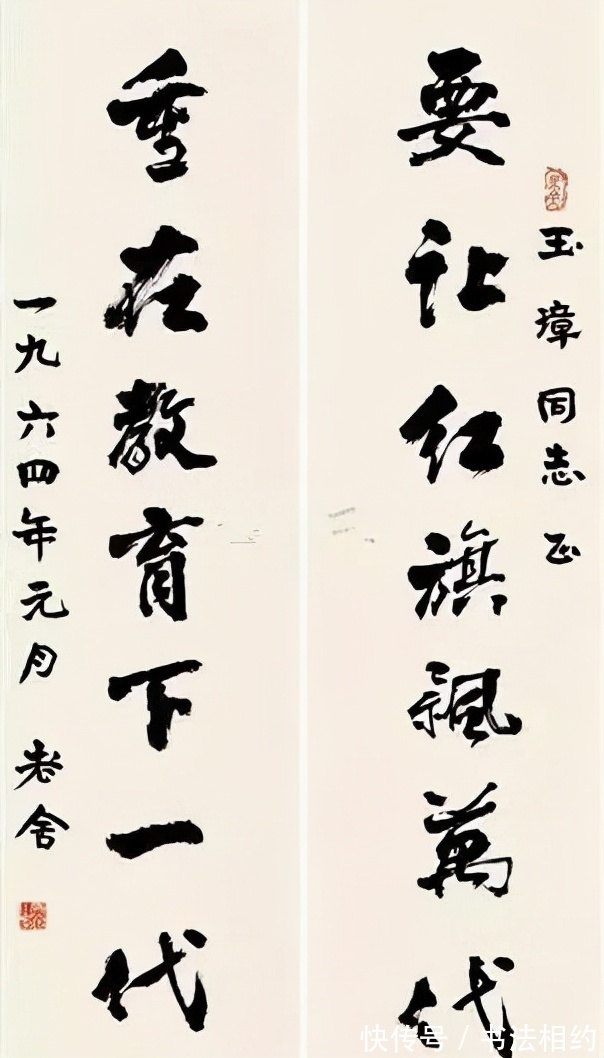 玉璋同志正
要让红旗飘萬代
重在教育下一代
一九六四年元月 老舍
老舍
快传号 / 书法相约